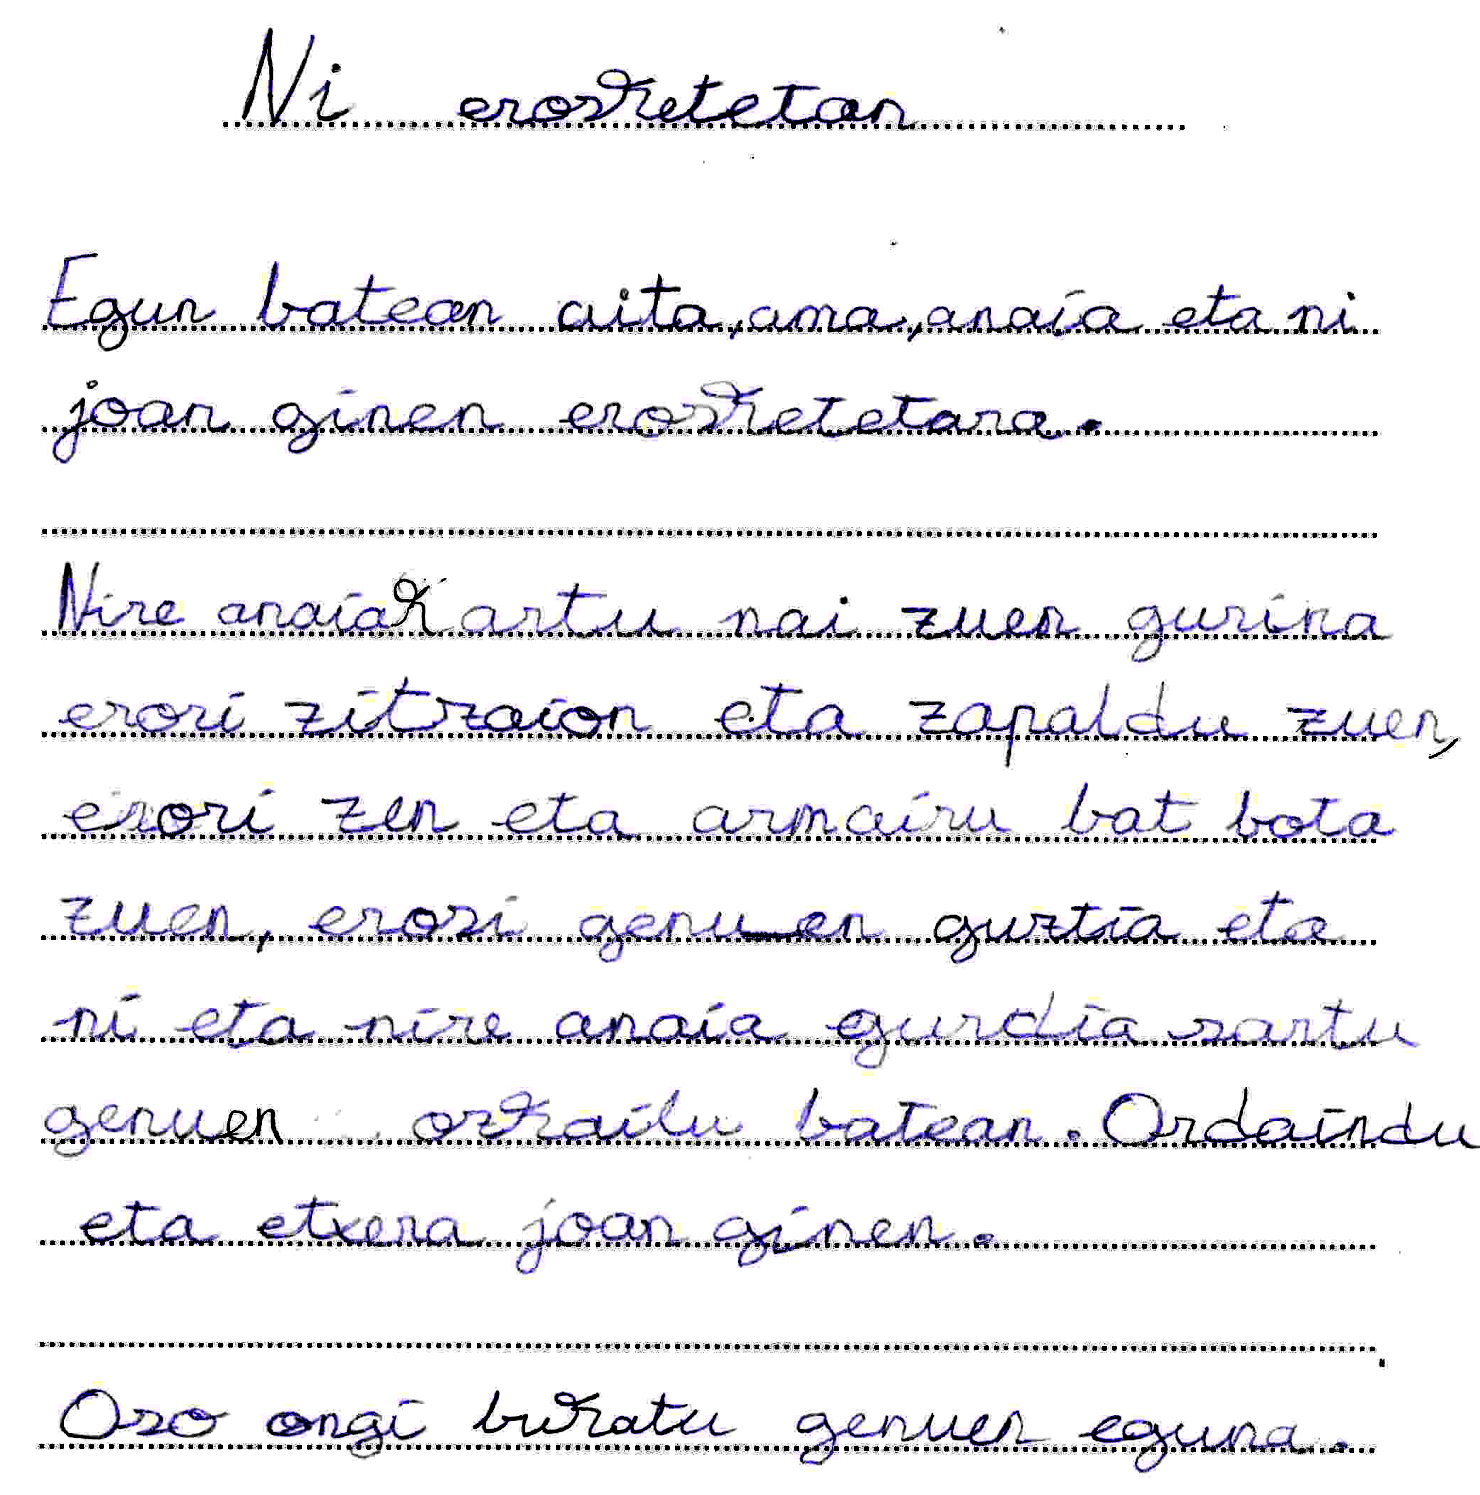 Ni erosketetan
Egun batean aita, ama, anaia eta ni
joan ginen erosketetara.
Nire anaiak artu nai zuen gurina
erori zitzaion eta zapaldu zuen,
erori zen eta armairu bat bota
zuen, erosi genuen guztia eta
ni eta nire anaia gurdia sartu
genuen ozkailu batean. Ordaindu
eta etxera joan ginen.
Oso ongi bukatu genuen eguna.